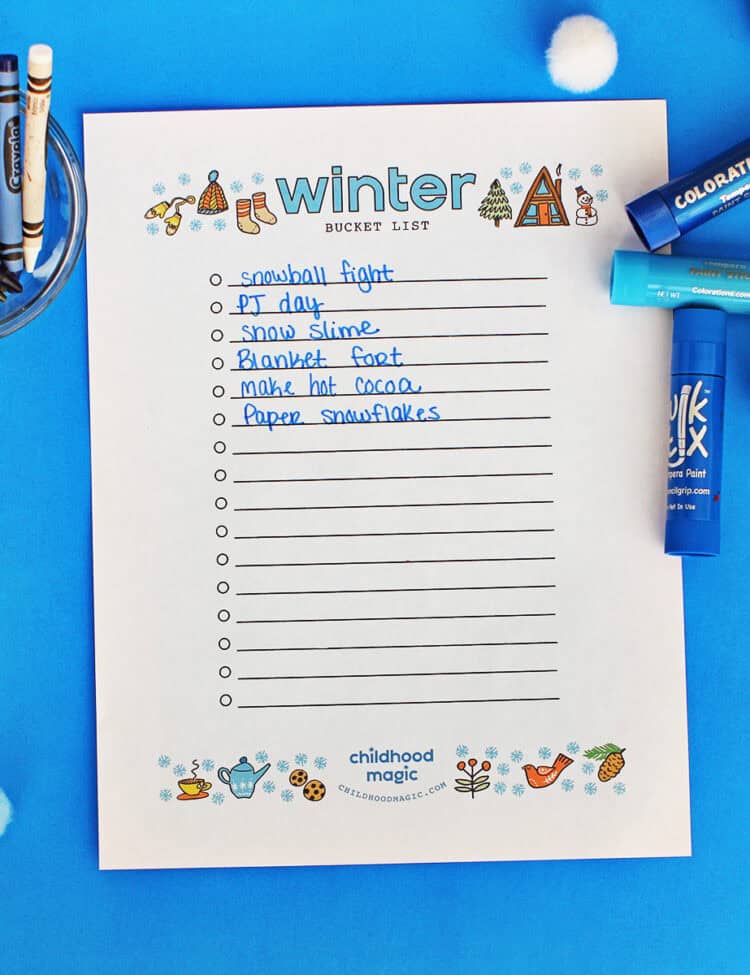 winter
BUCKET LIST
snowball fight
PJ day
snow slime
Blanket fort
make hot cocoa
Paper snowflakes
childhood
magic
CHILDHOODMAGIC.COM
Crayola
COLORATIONS
Colorations.com
NET WT
Paint
pencilgrip.com
Not In Use